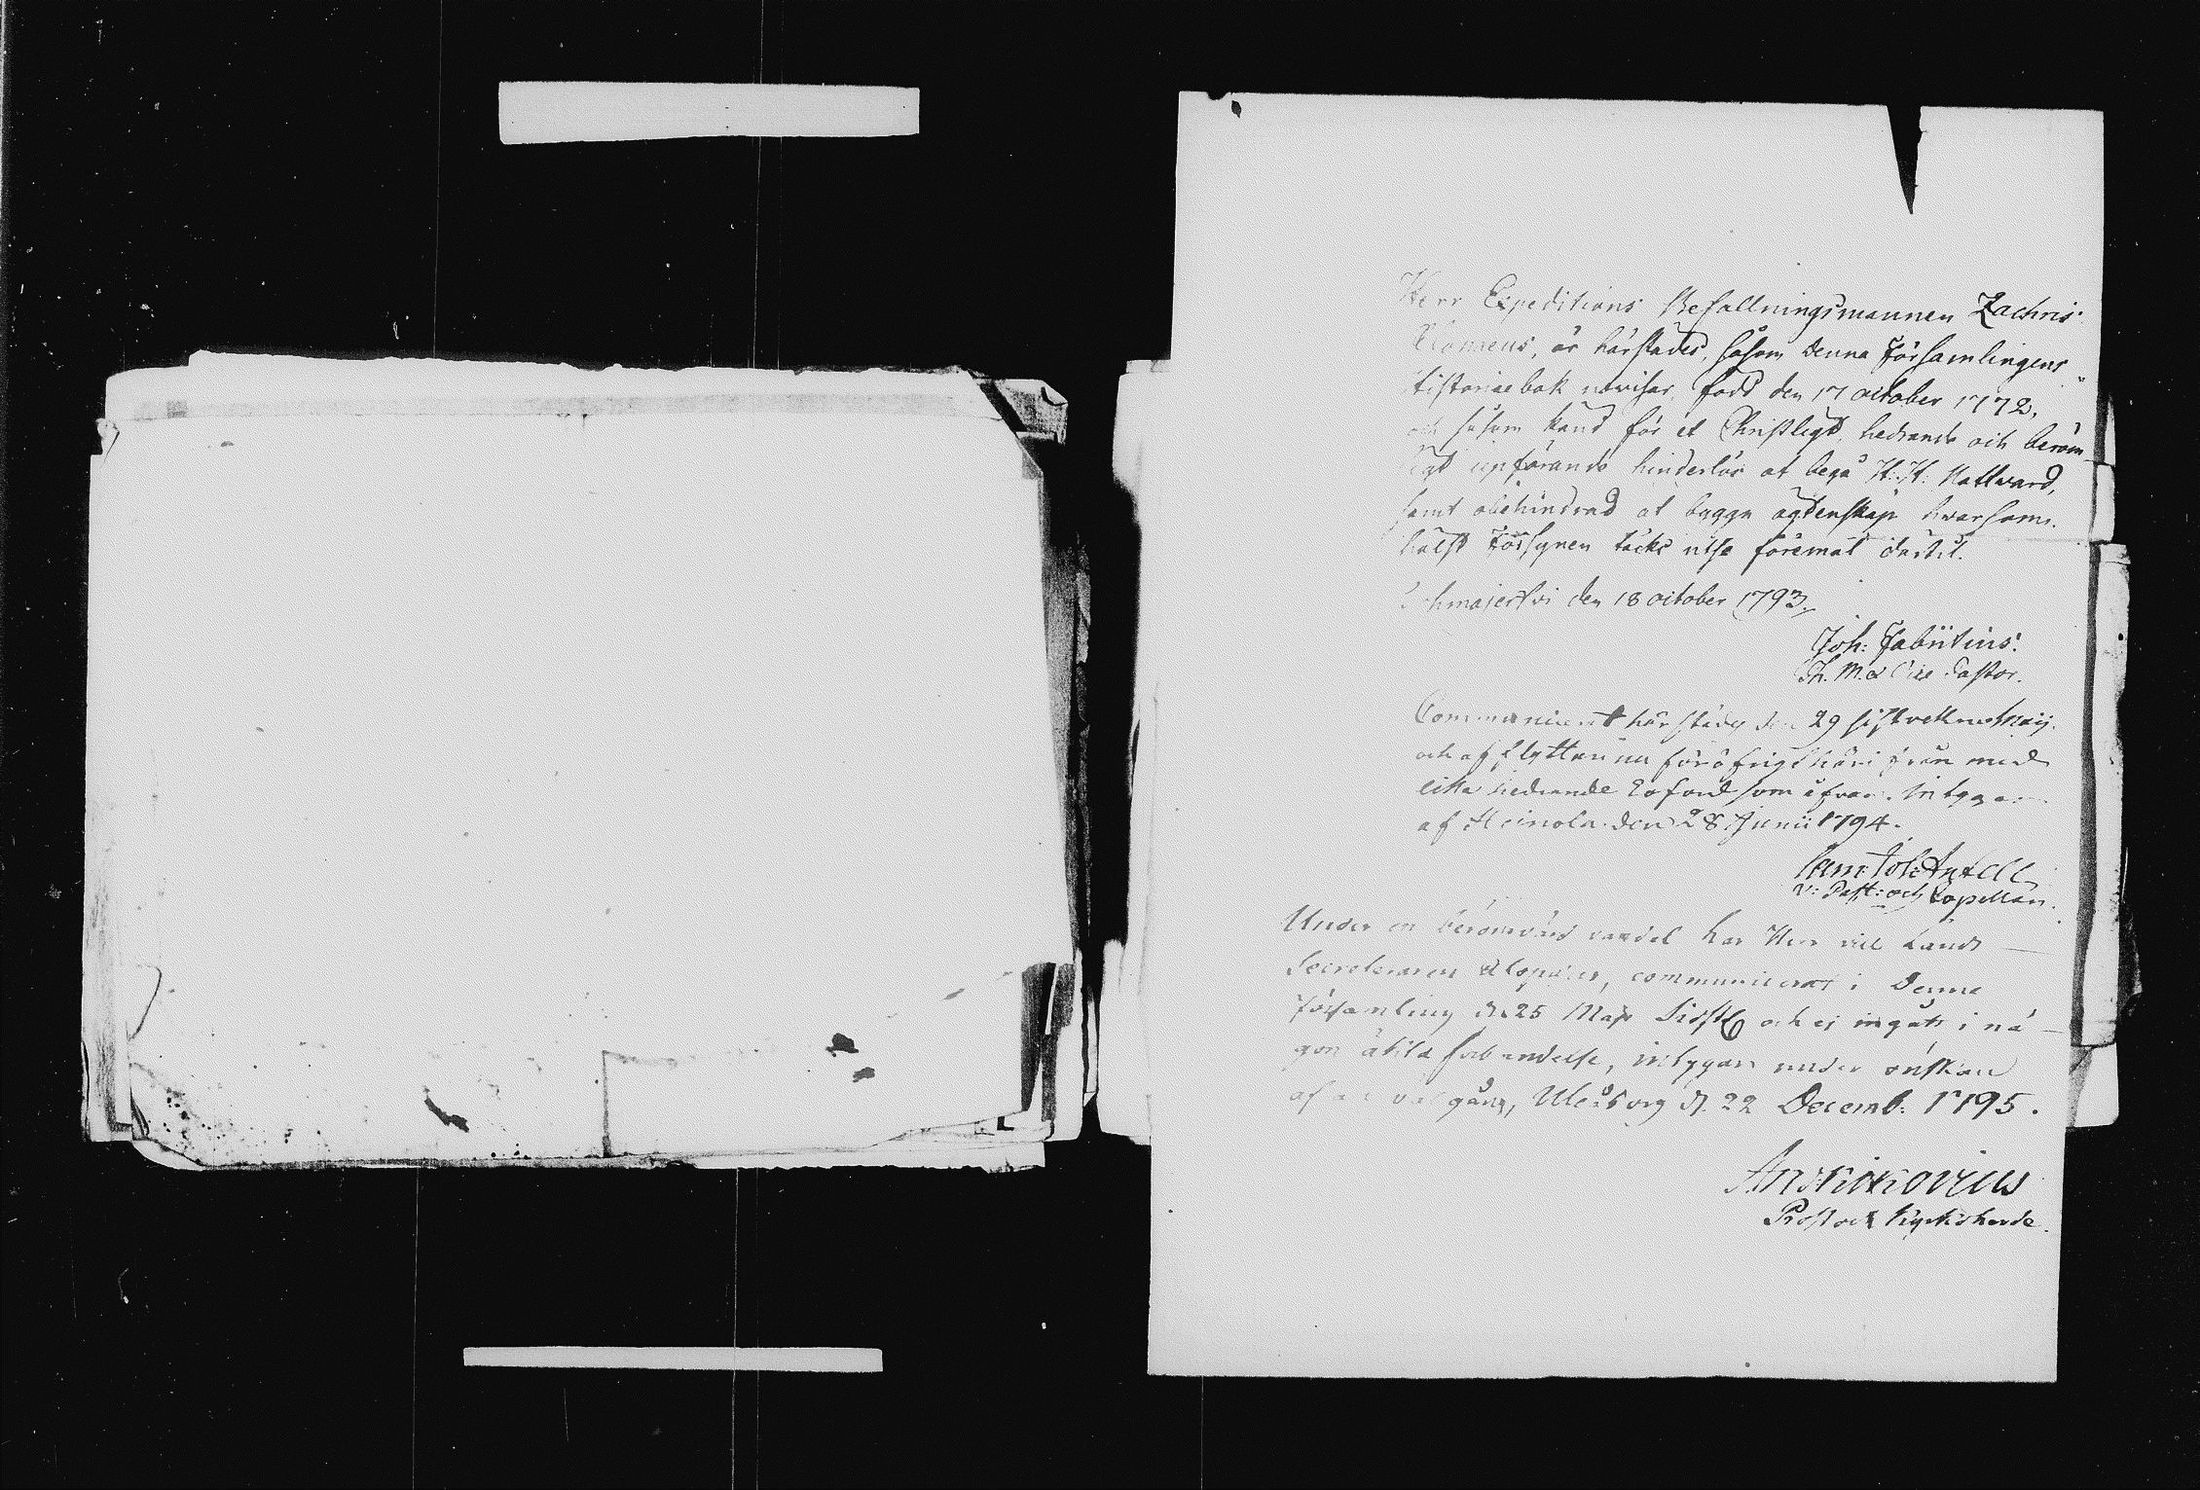 Herr Expeditions Befallningsmannen Zachris
Clopæus, är härstädes, såsom denna Församlingens
Historiæ bok utvisar, född den 17 october 1772,
och såsom känd för et Christligt, hedrande och beröm-
ligt upförande hinderlös at begå H. H. Nattward,
samt obehindrad at bygga ägtenskap hvarsom-
hälst Försynen täcks utse föremål dertil.
den 18 october 1793.
Joh: Fabritius:
Th. M. & Vice Pastor.
Communicerat härstädes den 29 sistvekne Maij.
och afflyttar nu föröfrigt härifrån med
lika hedrande Loford som ofvan. Intygar
af Heinola den 28 Junii 1794.
Sam: Joh: Antell
V: Past: och Capellan.
Under en berömvärd vandel har Herr vice Lands
Secreteraren Clopæus, communicerat i Denna
församling d. 25 Maji Sidstl. och ej ingått i nå-
gon ägta förbindelse, intygar under önskan
af all välgång, Uleåborg d. 22 Decemb: 1795.
Prost och Kyrkoherde.